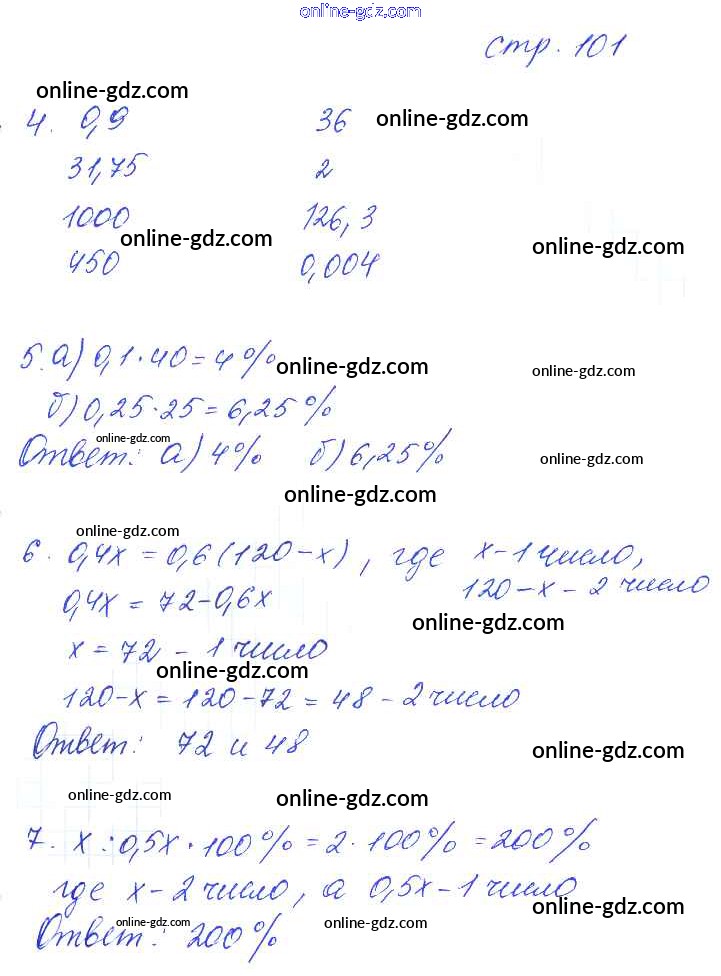 online-gdz.com
стр. 101
online-gdz.com
4. 0,9 36 online-gdz.com
31,75 2
1000 126,3
online-gdz.com online-gdz.com
450 0,004
5. а) 0,1·40 = 4% online-gdz.com online-gdz.com
б) 0,25·25 = 6,25%
online-gdz.com
Ответ: а) 4% б) 6,25% online-gdz.com
online-gdz.com
online-gdz.com
6. 0,4x = 0,6(120-x), где x - 1 число,
120-x - 2 число
0,4x = 72-0,6x
online-gdz.com
x = 72 - 1 число
online-gdz.com
120-x = 120-72 = 48 - 2 число
Ответ: 72 и 48 online-gdz.com
online-gdz.com online-gdz.com
7. x:0,5x·100% = 2·100% = 200%
где x - 2 число, а 0,5x - 1 число
online-gdz.com
online-gdz.com online-gdz.com
Ответ: 200%